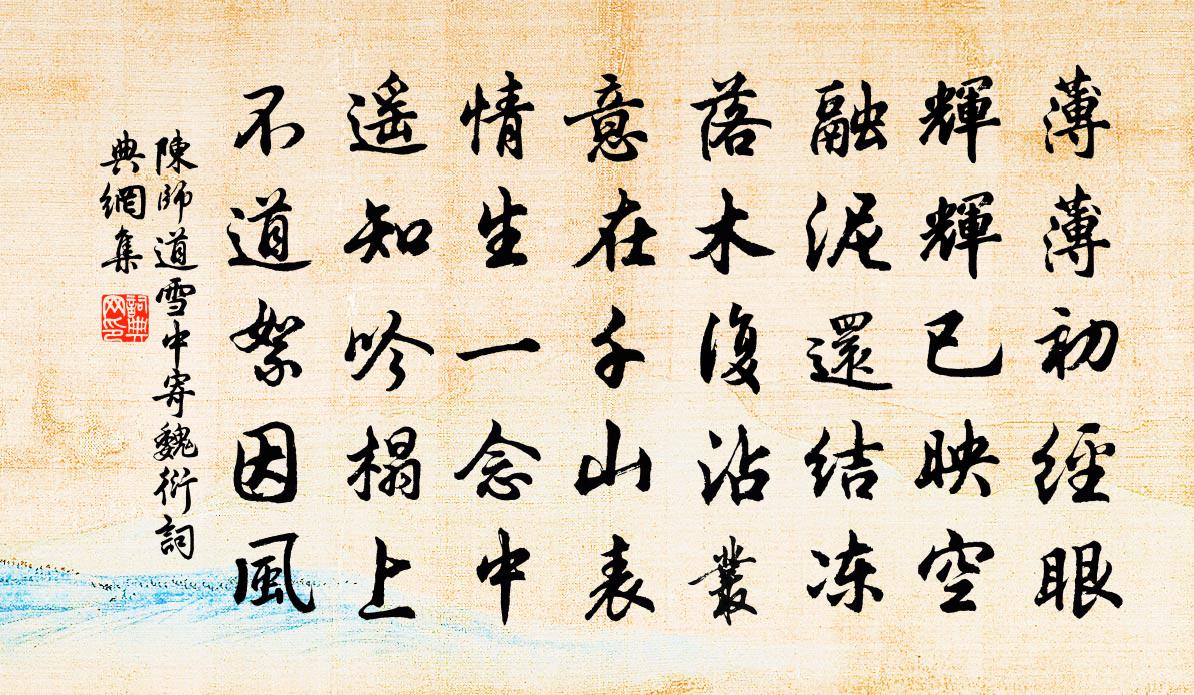 薄薄初經眼
輝輝已映空
融泥還結冻
落木復沾叢
意在千山表
情生一念中
遥知吟榻上
不道絮因風
陳師道雪中寄魏衍詞
典網集
詞典
网印